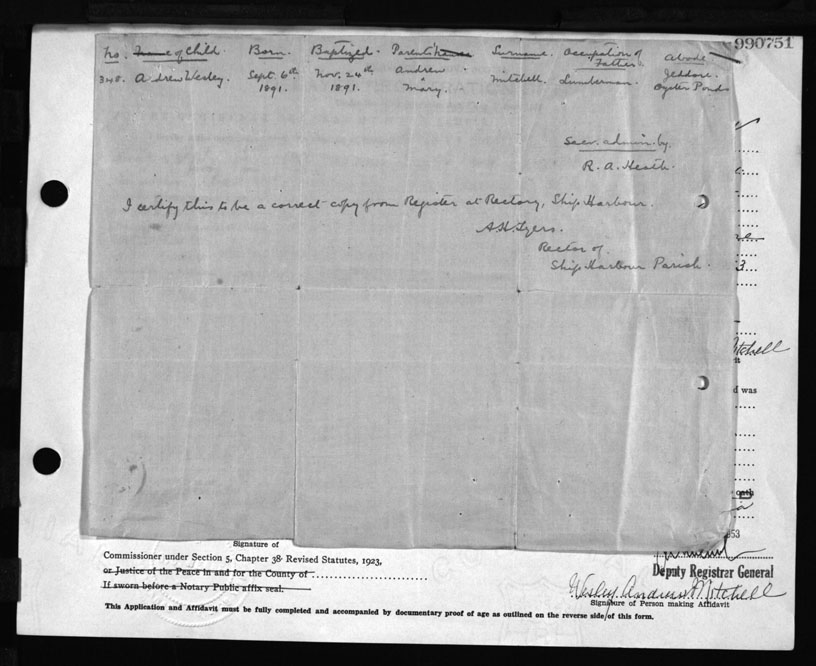 990751
No. Name of Child. Born. Baptized. Parents Names Surname. Occupation of Father. Abode.
348. Andrew Wesley. Sept. 6th 1891. Nov. 24th 1891. Andrew & Mary. Mitchell. Lumberman. Jeddore Oyster Ponds
admin. by.
R. A. Heath.
I certify this to be a correct copy from Register at Rectory, Ship Harbour.
Rector of
Ship Harbour Parish.
3
itchell
d was
oath
953
Signature of
Commissioner under Section 5, Chapter 38 Revised Statutes, 1923,
or Justice of the Peace in and for the County of
If sworn before a Notary Public affix seal.
Deputy Registrar General
Wesley Andrew Mitchell
Signature of Person making Affidavit
This Application and Affidavit must be fully completed and accompanied by documentary proof of age as outlined on the reverse side of this form.